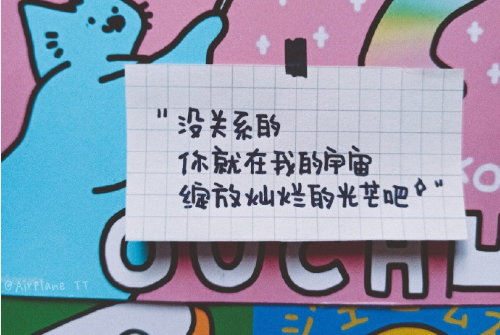 "没关系的
你就在我的宇宙
绽放灿烂的光芒吧✧"
OUCH
@AirPlane TT